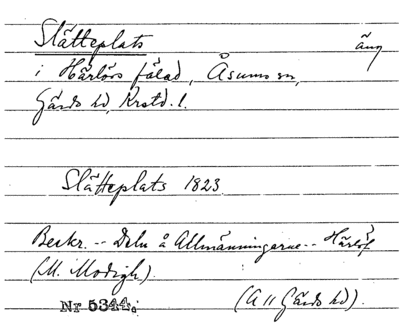 Slätteplats äng
i Härlövs fälad, Åsums sn,
Gärds hd, Krstd. l.
Slätteplats 1823
Beskr. -- Deln å Allmänningarne -- Härlöf
(M. Modigh).
Nr 5344. (A 11 Gärds hd).